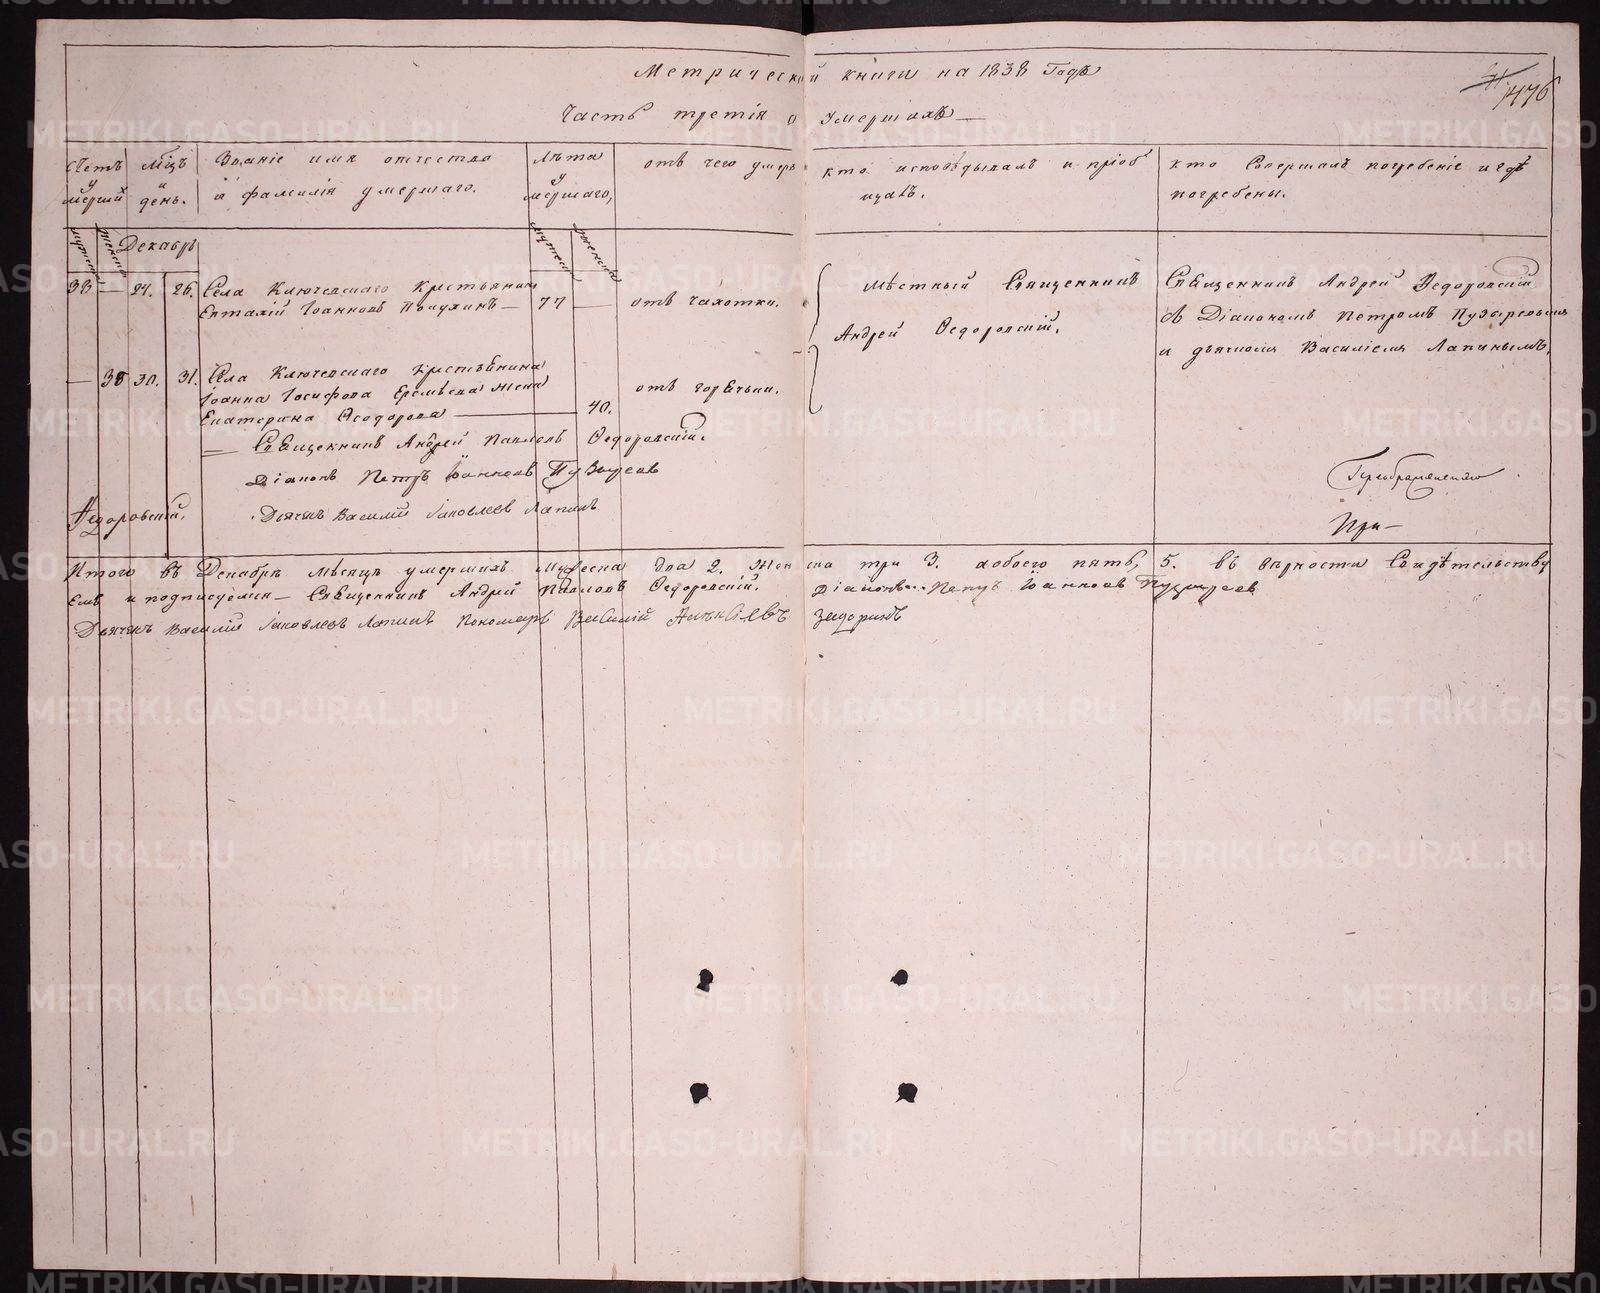 Метрической книги на 1838 Годъ
1476
Часть третія о умершихъ
Счетъ умершихъ
мѣсяцъ и день.
Званіе имя отчество и фамилія умершаго.
Лѣта умершаго,
отъ чего умеръ
кто исповѣдывалъ и пріобщалъ.
кто Совершалъ погребеніе и гдѣ погребены.
мужеск
женск
Декабрь
мужеск
женска
38 — 24. 26. Села Ключевскаго Крестьянинъ
Іоанновъ — 77 — отъ чахотки.
Мѣстный Священникъ
Андрей Ѳедоровскій.
Священникъ Андрей Ѳедоровскій
съ Діакономъ Петромъ Пузыревымъ
и дьячкомъ Василіемъ Лапинымъ,
— 35 30. 31. Села Ключевскаго Крестьянина
Іоанна Іосифова жена
Екатерина Ѳеодорова — 40. отъ горячки.
Священникъ Андрей Павловъ Ѳедоровскій.
Діаконъ Петръ Іоанновъ Пузыревъ
Дьячекъ Василий Іаковлевъ Лапинъ
Ѳедоровскій.
Преображенская
При—
Итого въ Декабрѣ мѣсяцѣ умершихъ мужеска два 2. женска три 3. а обоего пять, 5. въ вѣрности Свидѣтельству
емъ и подписуемся — Священникъ Андрей Павловъ Ѳедоровскій. Діаконъ Петръ Іоанновъ Пузыревъ
Дьячекъ Василій Іаковлевъ Лапинъ Пономарь Василій Алексѣевъ
METRIKI.GASO-URAL.RU